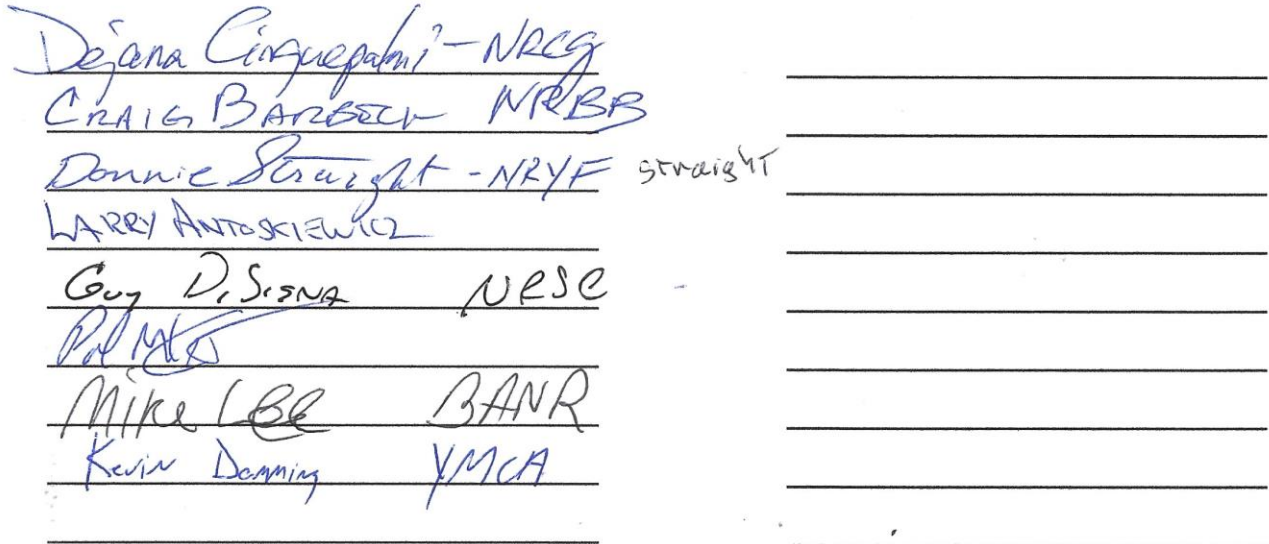 Dejana Cinquepalmi - NRCG
CRAIG BARBECK NRBB
Donnie Straight - NRYF straight
LARRY ANTOSKIEWICZ
Guy DiSiena NRSC
Mike Lee BANR
Kevin Demming YMCA